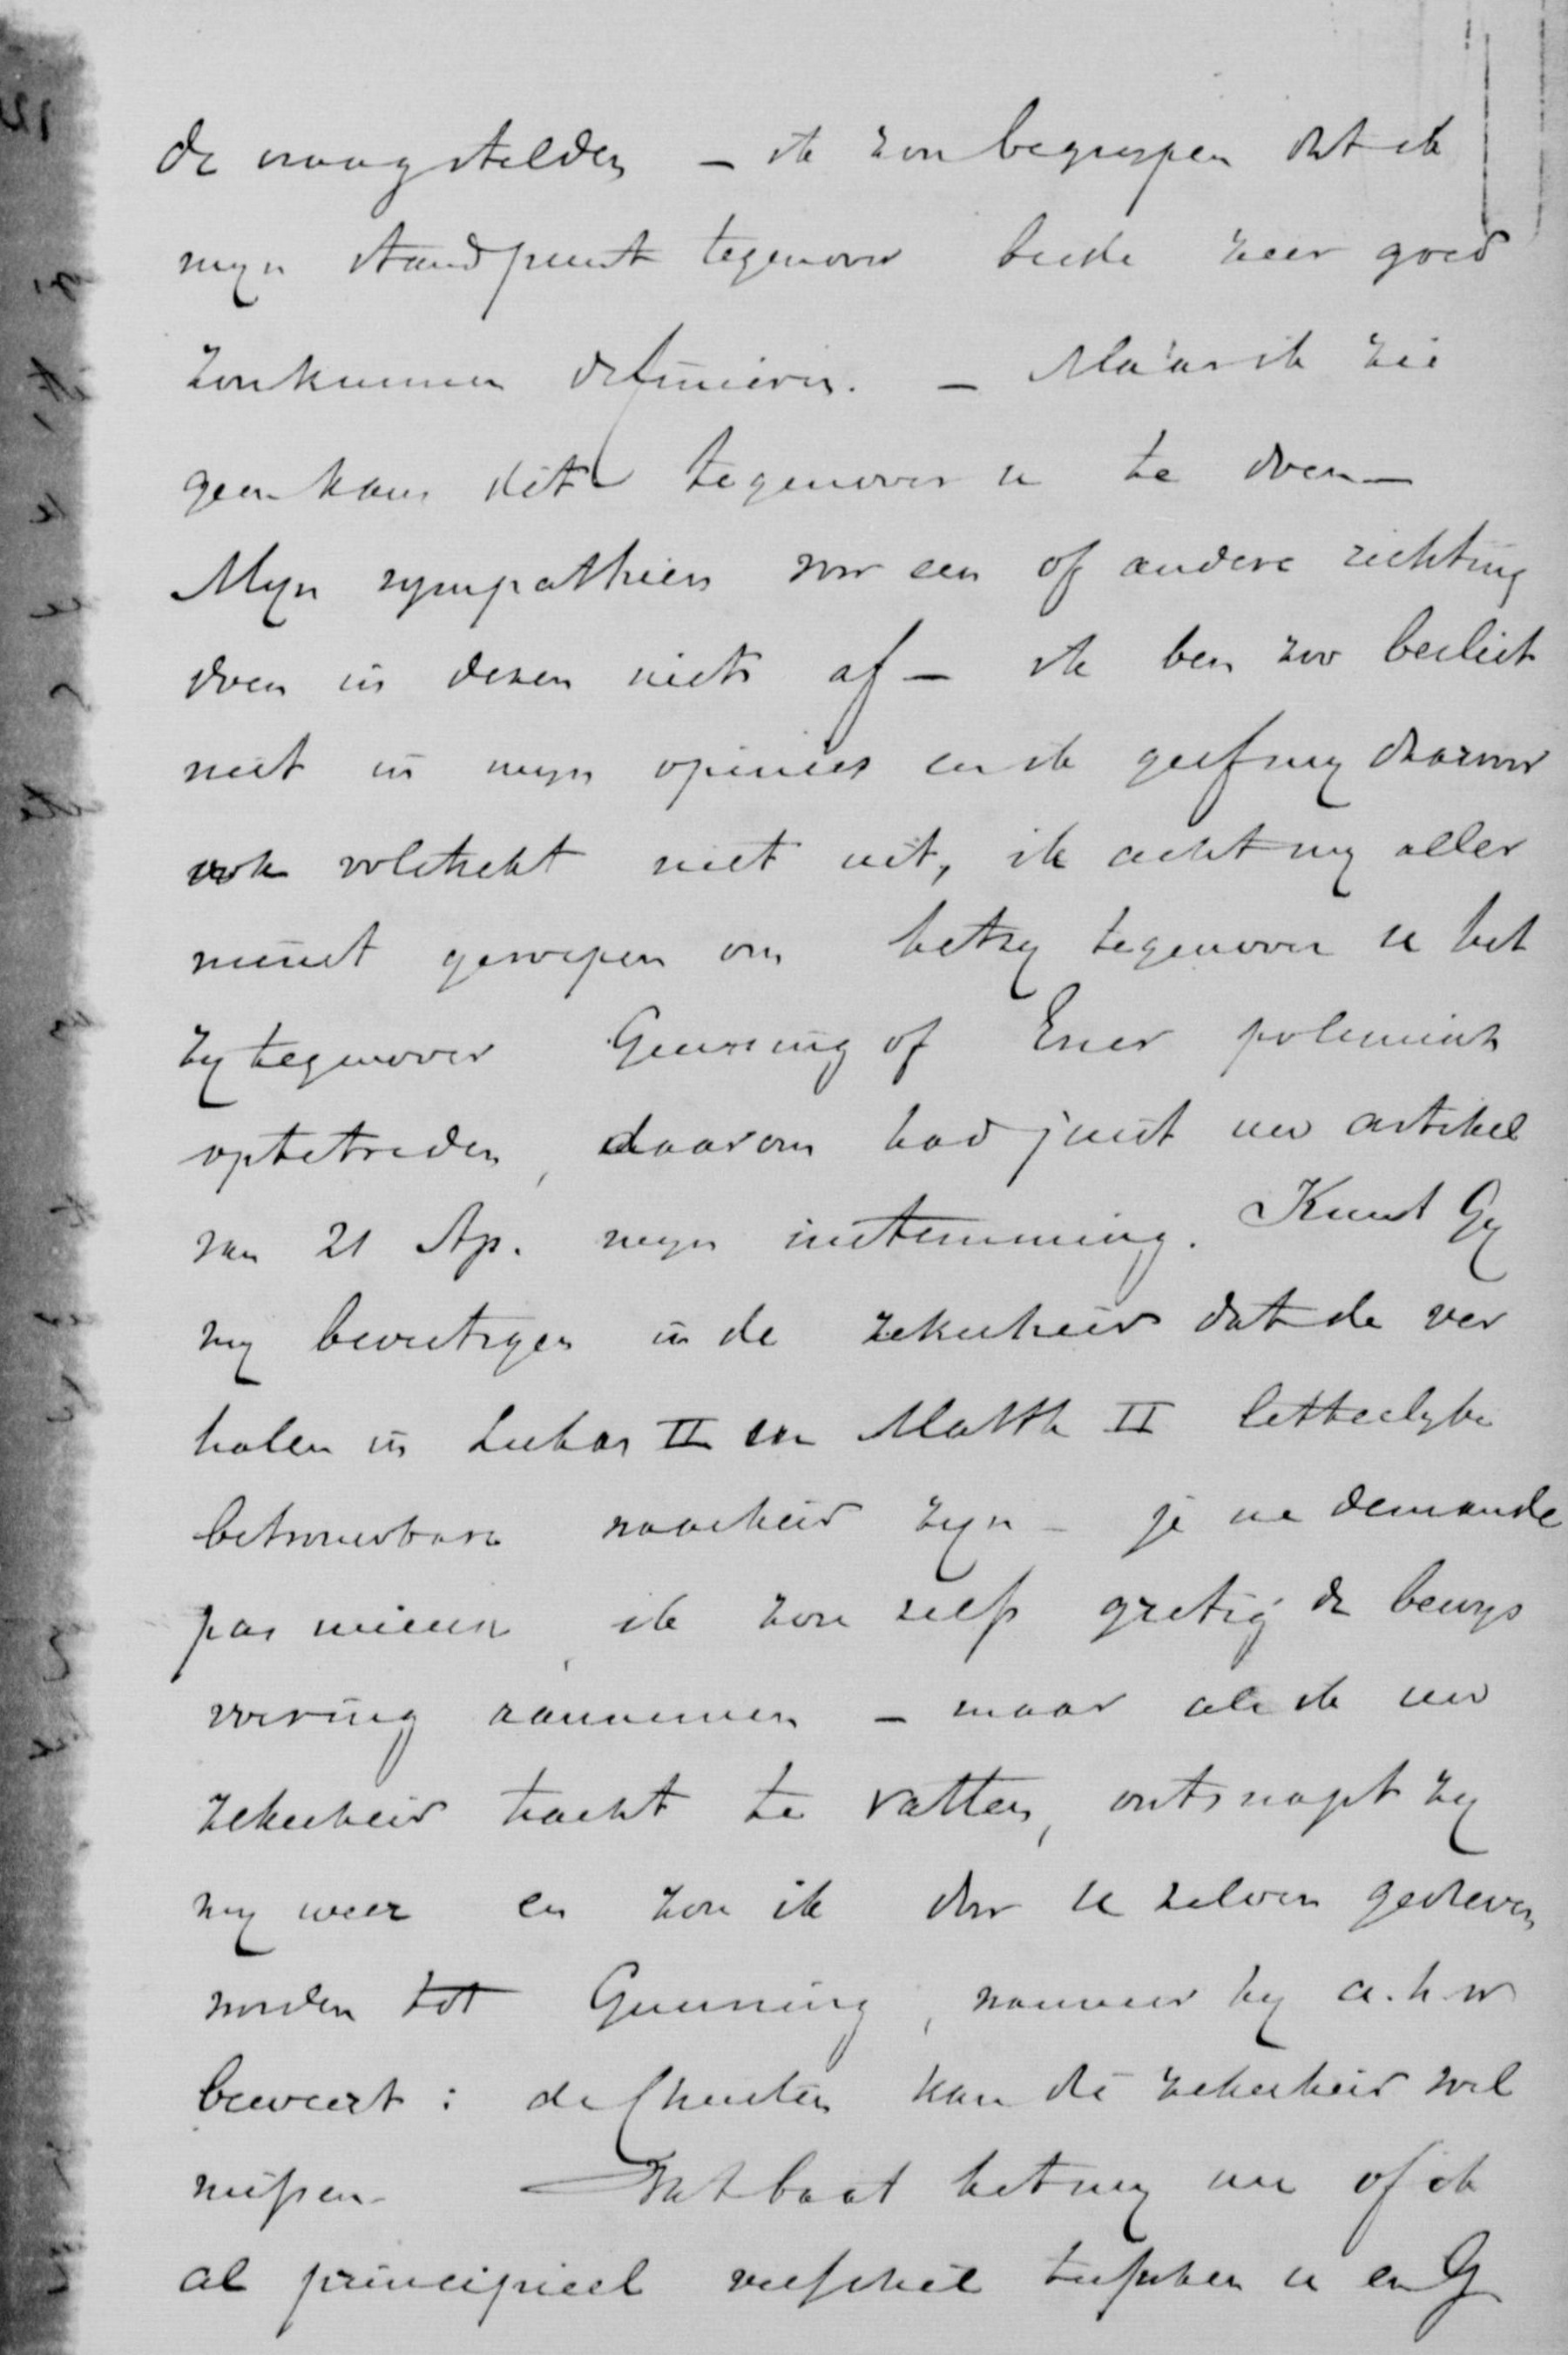 de vraag stelden – ik zou begrijpen dat ik
mijn standpunt tegenover beide zeer goed
zou kunnen definieren. – Maar ik zie
geen kans dit tegenover u te doen –
Mijn sympathien voor een of andere richting
doen in dezen niets af – ik ben zoo beslist
niet in mijn opinies en ik geef mij daarvoor
ook volstrekt niet uit, ik acht mij aller
minst geroepen om hetzij tegenover u het
zij tegenover Gunning of Esser polemisch
optetreden, daarom had juist uw artikel
van 21 Ap. mijn instemming. Kunt Gij
mij bevestigen in de zekerheid dat de ver
halen in Lukas II en Matth II letterlijke
betrouwbare waarheid zijn – je ne demande
pas mieux, ik zou zelfs gretig de bewijs
voering aannemen – maar als ik uw
zekerheid tracht te vatten, ontsnapt zij
mij weer en zou ik door u zelven gedreven
worden tot Gunning, wanneer hij a.h.w
beweert: de Christen kan die zekerheid wel
missen – Wat baat het mij nu of ik
al principieel verschil tusschen u en G